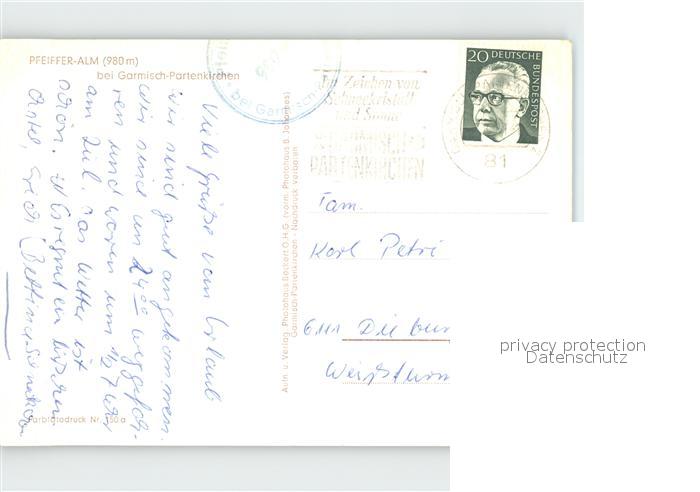 PFEIFFER-ALM (980 m)
bei Garmisch-Partenkirchen
Viele Grüße vom Urlaub
wir sind gut angekommen.
Wir sind um 24⁰⁰ weggefah-
ren und waren um 1/2 7 Uhr
am Ziel. Das Wetter ist
schön. Es regnet ein bißchen
Farbfotodruck Nr. 150 a
Aufn. u. Verlag: Photohaus Beckert O.H.G. (vorm. Photohaus B. Johannes)
Garmisch-Partenkirchen - Nachdruck verboten
bei Garmisch
Im Zeichen von
Schneekristall
und Sonne
GARMISCH-
PARTENKIRCHEN
81
20 DEUTSCHE
BUNDESPOST
Fam.
Karl Petri
6111 Dieburg
privacy protection
Datenschutz